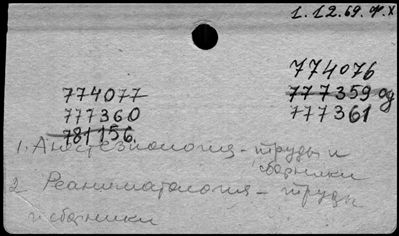 1.12.69. Ф.Х
774076
774077
777359 од
777360
777361
781156.
1. Анестезиология - труды и
сборники
2 Реаниматология - труды
и сборники